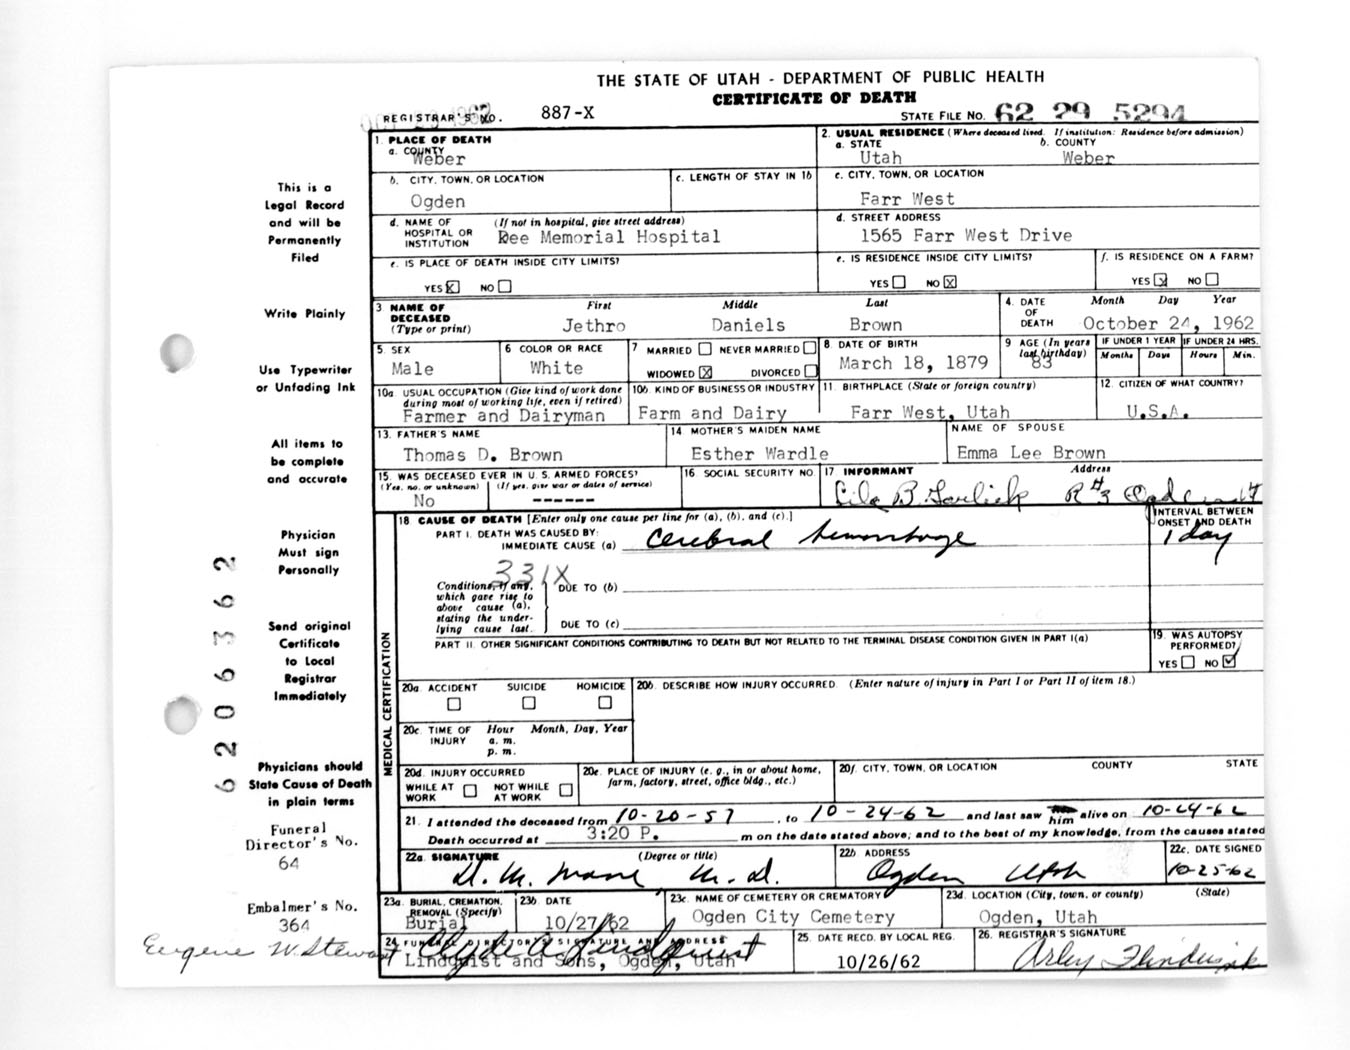 THE STATE OF UTAH - DEPARTMENT OF PUBLIC HEALTH
CERTIFICATE OF DEATH
REGISTRAR'S NO. 887-X STATE FILE NO. 62 29 5294
1. PLACE OF DEATH
a. COUNTY
Weber
2. USUAL RESIDENCE (Where deceased lived. If institution: Residence before admission)
a. STATE b. COUNTY
Utah Weber
b. CITY, TOWN, OR LOCATION c. LENGTH OF STAY IN 1b c. CITY, TOWN, OR LOCATION
Ogden Farr West
d. NAME OF HOSPITAL OR INSTITUTION (If not in hospital, give street address) d. STREET ADDRESS
Dee Memorial Hospital 1565 Farr West Drive
e. IS PLACE OF DEATH INSIDE CITY LIMITS? e. IS RESIDENCE INSIDE CITY LIMITS? f. IS RESIDENCE ON A FARM?
YES X NO YES NO X YES X NO
3. NAME OF DECEASED (Type or print) First Middle Last 4. DATE OF DEATH Month Day Year
Jethro Daniels Brown October 24, 1962
5. SEX 6. COLOR OR RACE 7. MARRIED NEVER MARRIED 8. DATE OF BIRTH 9. AGE (In years last birthday) IF UNDER 1 YEAR IF UNDER 24 HRS.
Months Days Hours Min.
Male White WIDOWED X DIVORCED March 18, 1879 83
10a. USUAL OCCUPATION (Give kind of work done during most of working life, even if retired) 10b. KIND OF BUSINESS OR INDUSTRY 11. BIRTHPLACE (State or foreign country) 12. CITIZEN OF WHAT COUNTRY?
Farmer and Dairyman Farm and Dairy Farr West, Utah U.S.A.
13. FATHER'S NAME 14. MOTHER'S MAIDEN NAME NAME OF SPOUSE
Thomas D. Brown Esther Wardle Emma Lee Brown
15. WAS DECEASED EVER IN U.S. ARMED FORCES? 16. SOCIAL SECURITY NO. 17. INFORMANT Address
(Yes, no, or unknown) (If yes, give war or dates of service)
No ------ B. R #3
18. CAUSE OF DEATH [Enter only one cause per line for (a), (b), and (c).] INTERVAL BETWEEN ONSET AND DEATH
PART I. DEATH WAS CAUSED BY:
IMMEDIATE CAUSE (a) Cerebral hemorrhage 1 day
331X
Conditions, if any, which gave rise to above cause (a), stating the underlying cause last.
DUE TO (b)
DUE TO (c)
PART II. OTHER SIGNIFICANT CONDITIONS CONTRIBUTING TO DEATH BUT NOT RELATED TO THE TERMINAL DISEASE CONDITION GIVEN IN PART I(a)
19. WAS AUTOPSY PERFORMED?
YES NO
MEDICAL CERTIFICATION
20a. ACCIDENT SUICIDE HOMICIDE 20b. DESCRIBE HOW INJURY OCCURRED. (Enter nature of injury in Part I or Part II of item 18.)
20c. TIME OF INJURY Hour Month, Day, Year
a. m.
p. m.
20d. INJURY OCCURRED 20e. PLACE OF INJURY (e. g., in or about home, farm, factory, street, office bldg., etc.) 20f. CITY, TOWN, OR LOCATION COUNTY STATE
WHILE AT WORK NOT WHILE AT WORK
21. I attended the deceased from 10-20-57, to 10-24-62 and last saw him alive on 10-24-62
Death occurred at 3:20 P. m on the date stated above; and to the best of my knowledge, from the causes stated
22a. SIGNATURE (Degree or title) 22b. ADDRESS 22c. DATE SIGNED
D. M. M. D. Ogden Utah 10-25-62
23a. BURIAL, CREMATION, REMOVAL (Specify) 23b. DATE 23c. NAME OF CEMETERY OR CREMATORY 23d. LOCATION (City, town, or county) (State)
Burial 10/27/62 Ogden City Cemetery Ogden, Utah
24. FUNERAL DIRECTOR'S SIGNATURE AND ADDRESS 25. DATE RECD. BY LOCAL REG. 26. REGISTRAR'S SIGNATURE
Clyde A Lindquist
Lindquist and Sons, Ogden, Utah 10/26/62 Arley
This is a
Legal Record
and will be
Permanently
Filed
Write Plainly
Use Typewriter
or Unfading Ink
All items to
be complete
and accurate
Physician
Must sign
Personally
Send original
Certificate
to Local
Registrar
Immediately
Physicians should
State Cause of Death
in plain terms
Funeral
Director's No.
64
Embalmer's No.
364
Eugene W. Stewart
62 0 6362